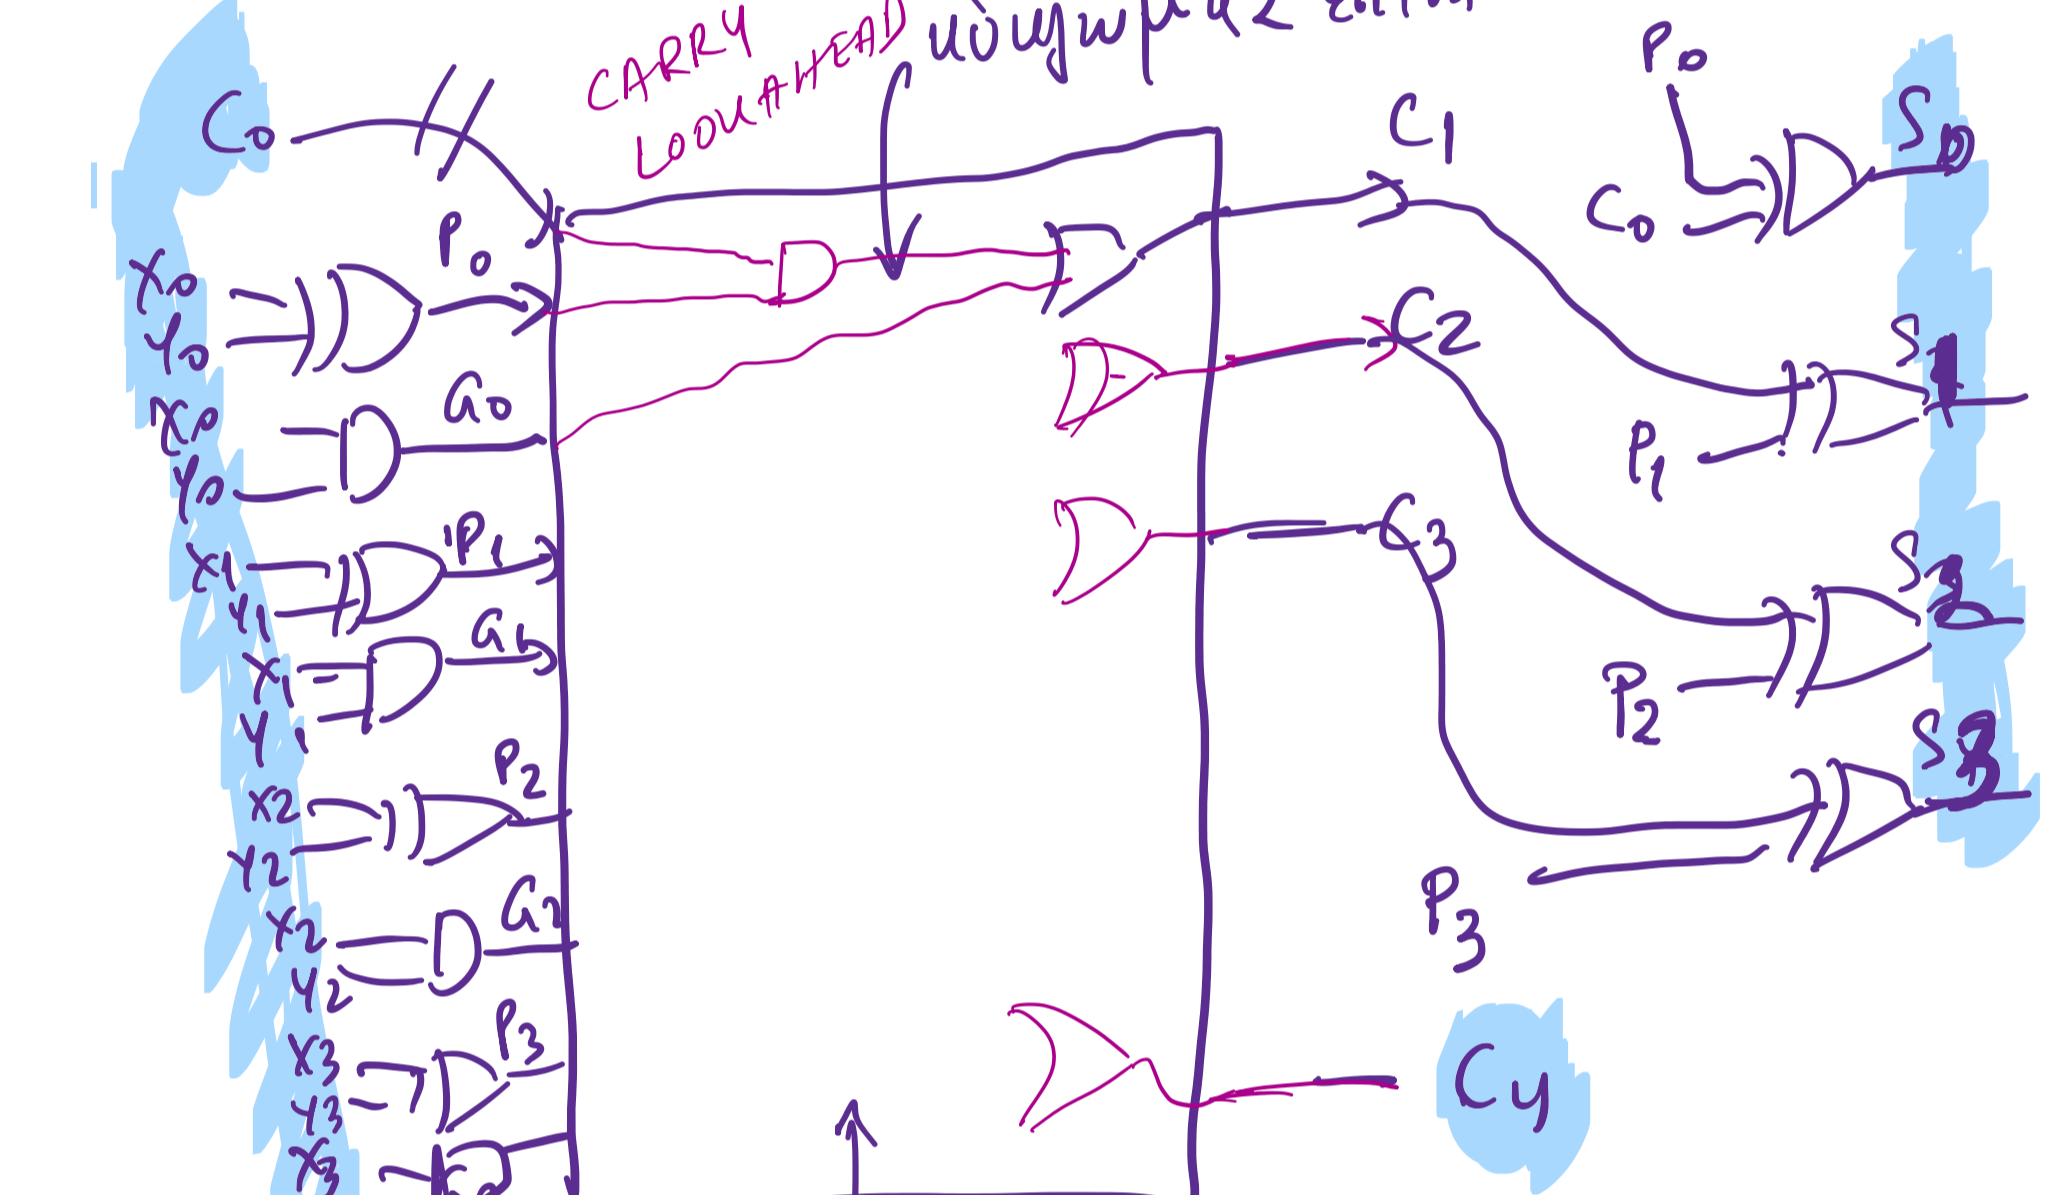 CARRY
LOOKAHEAD
C0
P0
X0
Y0
G0
X0
Y0
P1
X1
Y1
G1
X1
Y1
P2
X2
Y2
G2
X2
Y2
P3
X3
Y3
X3
C1
C2
C3
Cy
P0
C0
S0
P1
S1
P2
S2
P3
S3